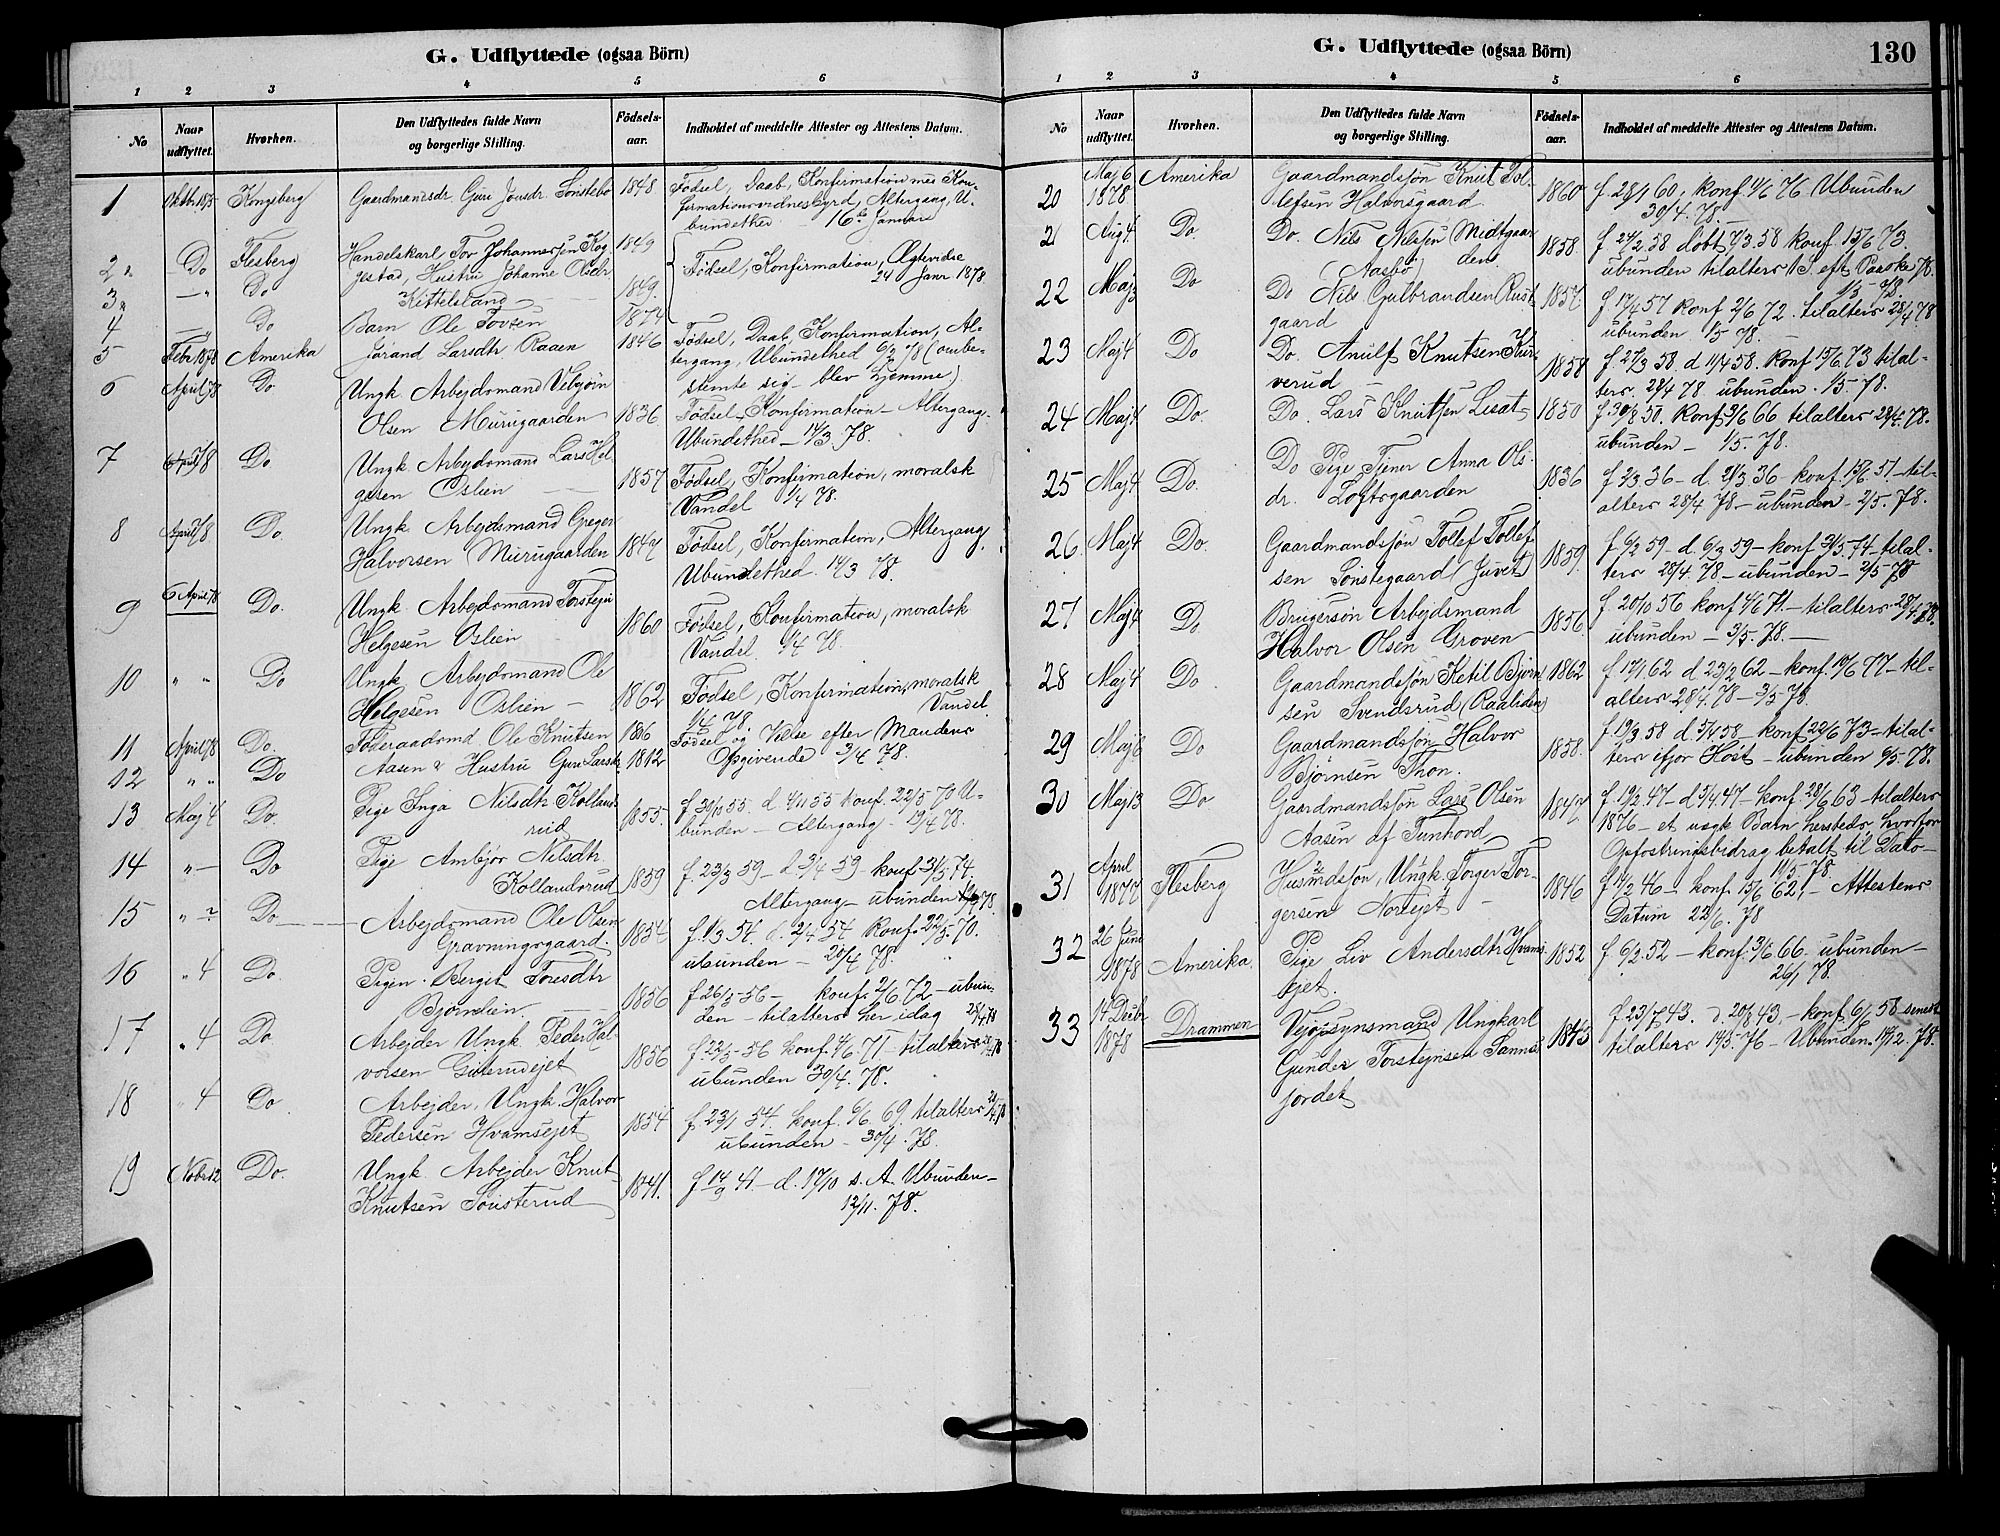 G. Udflyttede (ogsaa Börn)
1 2 3 4 5 6
No
Naar udflyttet.
Hvorhen.
Den Udflyttedes fulde Navn og borgerlige Stilling.
Födsels-aar.
Indholdet af meddelte Attester og Attestens Datum.
1 Kongsberg Gaardmandsdr. Guri Jonsdr. Sönstebö 1848 Fødsel, Daab, Konfirmation med Kon-
firmationsordnesbyrd, Altergang, U-
bundethed - 16de Januar
2 Do Flesberg Handelskarl Tov Johannessen Kog 1849
3 Do gestad, Hustru Johanne Olsdr Fødsel, Konfirmation, Ægtevidse
Kittelsland 1849 24 Janr 1878.
4 Do Barn Ole Tovsen 1874
5 Febr 1878 Amerika Jörand Larsdtr Raaen 1846 Fødsel, Daab, Konfirmation, Al-
tergang, Ubundethed 6/2 78 (ombe-
stemte sig - blev hjemme)
6 April 78 Do Ungk Arbejdsmand Vebjörn
Olsen Murugaarden 1836 Fødsel, Konfirmation - Altergang.
Ubundethed - 14/3. 78.
7 April 78 Do Ungk. Arbejdsmand Lars Hel
gesen Oslien 1857 Fødsel, Konfirmation, moralsk
Vandel 1/4 78.
8 April 78 Do. Ungk. Arbejdsmand Greger
Halvorsen Murugaarden 1847 Fødsel, Konfirmation, Altergang,
Ubundethed 14/3 78.
9 6 April 78 Do. Ungk. Arbejdsmand Torstejn
Helgesen Oslien 1860 Fødsel, Konfirmation, moralsk
Vandel. 1/4 78.
10 " " Do Ungk. Arbejdsmand Ole
Helgesen Oslien - 1862 Fødsel, Konfirmation, moralsk
1/4 78 Vandel
11 April 78 Do. Föderaadsmd Ole Knutsen 1806 Fødsel og Velse efter Mandens
12 " " Do Aasen & Hustru Guri Larsdr. 1812 Opgivende 3/4 78.
13 Maj 4 Do. Pige Inga Nilsdtr Kollands
rud 1855. f. 31/10 55. d. 4/11 55 konf. 22/5 70 U-
bunden - Altergang - 19/4 78.
14 " - Do Pige Ambjör Nilsdtr.
Kollandsrud 1859 f. 23/3 59 - d. 3/4 59 - konf 31/5 74.
Altergang - ubunden
15 " " Do Arbejdsmand Ole Olsen
Gravningsgaard. 1854 f. 1/3 54. d. 2/4 54 Konf. 22/5. 70.
ubunden - 20/4 78.
16 " 4 Do. Pigen Berget Toresdtr
Björndien. 1856 f 26/3 56 - konf. 2/6 72 - ubun-
den - tilalters her idag 28/4 78
17 " 4 Do. Arbejder Ungk. Peder Hal-
vorsen Guterudejet 1856 f. 23/5 56 konf. 4/6 71 - tilalters
ubunden 30/4. 78.
18 " 4 Do Arbejder, Ungk. Halvor
Pedersen Hvamsejet 1854 f. 23/1 54. konf. 6/6 69. tilalters
ubunden - 30/4. 78.
19 Novbr 12 Do. Ungk. Arbejder Knut
Knutsen Sönsterud 1841. f 14/9 41 - d. 17/10 s. A. Ubunden -
12/11. 78.
G. Udflyttede (ogsaa Börn)
130
1 2 3 4 5 6
No
Naar udflyttet.
Hvorhen.
Den Udflyttedes fulde Navn og borgerlige Stilling.
Födsels-aar.
Indholdet af meddelte Attester og Attestens Datum.
20 Maj 6 1878 Amerika Gaardmandssön Knut Tol
lefsen Halvorsgaard. 1860 f. 28/1 60, konf. 4/6 76 Ubunden
30/4. 78.
21 Do Do. Nils Nilssen Midtgaar
den. (Aasbö) 1858 f 24/2. 58 döbt 7/3. 58 konf. 15/6 73.
ubunden tilalters 1 S. eft Paaske 78.
1/5 78.
22 Maj 3 Do Do Nils Gulbrandsen Rust
gaard 1857. f. 17/4 57 konf 2/6 72. tilalters 28/4 78
ubunden 1/5 78.
23 Maj 4 Do Do. Anulf Knutsen
verud - 1858 f. 27/3 58 d 11/4 58. konf 15/6 73 tilal-
ters. 28/4 78 ubunden. 1/5 78.
24 Maj 4 Do. Do. Lars Knutsen 1850 f. 30/8 50. Konf 3/6 66 tilalters 28/4. 78.
ubunden - 1/5. 78.
25 Maj 4 Do. Do Pige Tjener Anna Ols
dr. Loftsgaarden 1836 f 2/3 36 - d. 21/3 36 - konf. 15/6. 51 - til-
alters 28/4 78 - ubunden - 2/5. 78.
26. Maj 4 Do. Gaardmandssön Tollef Tollef
sen Sönstegaard (Juvet) 1859. f. 6/2 59 - d. 6/3 59 - konf 31/5. 74 - tilal-
ters 28/4. 78 - ubunden - 2/5 78
27 Maj 4 Do Brugersön Arbejdsmand
Halvor Olsen Groven 1856. f. 20/10 56 konf 4/6 71. - tilalters 28/4 78.
ubunden - 3/5. 78. -
28 Maj 4 Do Gaardmandssön Ketil Björn
sen Svendsrud (Raaliden) 1862 f 17/1 62 d 23/2 62 - konf. 10/6 77 - til-
alters 28/4. 78 - 3/5 78.
29 Maj 6 Do Gaardmandssön Halvor
Björnsen Thon. 1858. f. 19/3 58 d. 5/4 58 - konf 22/6 73 - tilal-
ters ifjor Höst - ubunden 6/5. 78.
30 Maj 13 Do Gaardmandssön Lars Olsen
Aasen af Tunhovd 1847 f. 19/2. 47 - d 5/4. 47 - konf. 28/6 63 - tilalters
1876 - et uægt. Barn hersteds hvorfor
Opfostringsbidrag betalt til Dato -
11/5. 78.
31 April 1877 Flesberg Husmdssön, Ungk. Torger Tor-
gersen Norejet - 1846 f 11/2 46 - konf. 15/6 62, - Attestens
Datum 22/6. 78
32 26 Juni 1878 Amerika. Pige Liv Andersdtr Hvams
ejet. 1852 f. 6/2. 52 - konf. 3/6 66. ubunden -
26/1 78.
33 14 Decbr 1878 Drammen Vejopsynsmand Ungkarl
Gunder Torstejnsen Sannes
jordet 1843 f 23/7 43. d. 20/8 43, - konf. 6/6 58 senest
tilalters 14/5. 76 - Ubunden. 14/12. 78.